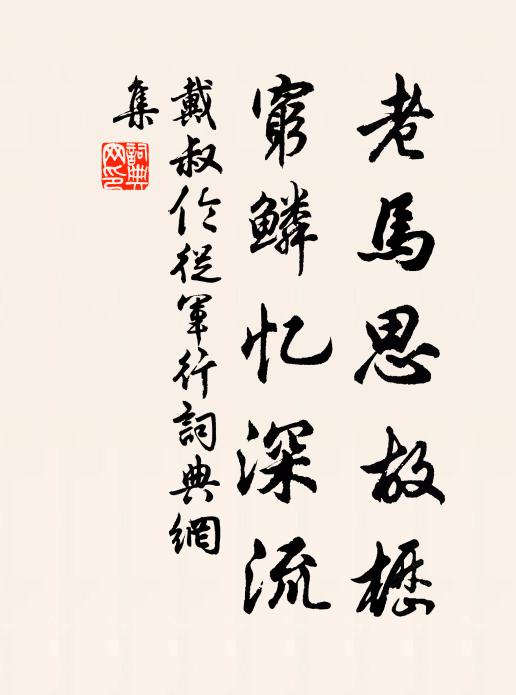 老馬思故櫪
窮鱗忆深流
戴叔伦從軍行詞典網
集
詞典网印